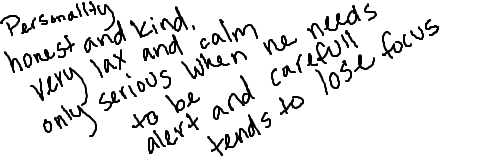 Personality
honest and kind.
very lax and calm
only serious when he needs
to be
alert and carefull
tends to lose focus